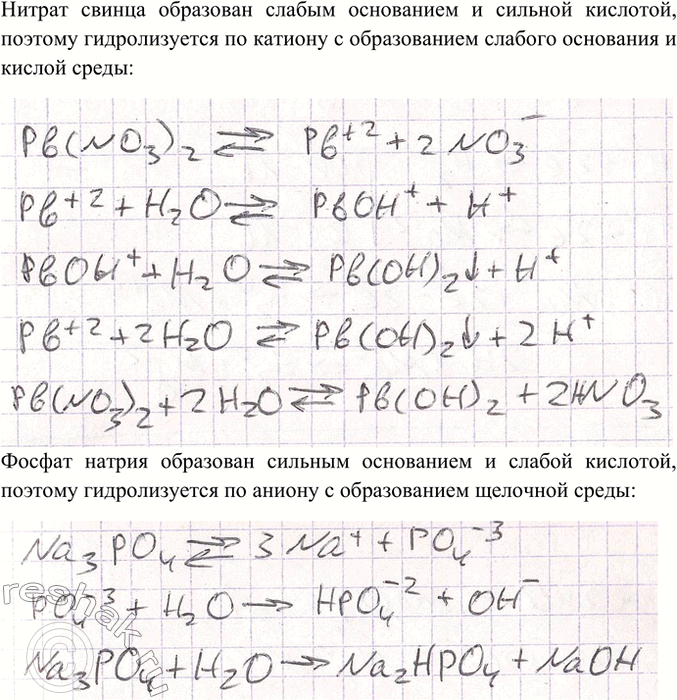 Нитрат свинца образован слабым основанием и сильной кислотой,
поэтому гидролизуется по катиону с образованием слабого основания и
кислой среды:
Pb(NO₃)₂ ⇄ Pb⁺² + 2NO₃⁻
Pb⁺² + H₂O ⇄ PbOH⁺ + H⁺
PbOH⁺ + H₂O ⇄ Pb(OH)₂↓ + H⁺
Pb⁺² + 2H₂O ⇄ Pb(OH)₂↓ + 2H⁺
Pb(NO₃)₂ + 2H₂O ⇄ Pb(OH)₂ + 2HNO₃
Фосфат натрия образован сильным основанием и слабой кислотой,
поэтому гидролизуется по аниону с образованием щелочной среды:
Na₃PO₄ ⇄ 3Na⁺ + PO₄⁻³
PO₄⁻³ + H₂O → HPO₄⁻² + OH⁻
Na₃PO₄ + H₂O → Na₂HPO₄ + NaOH
reshak.ru